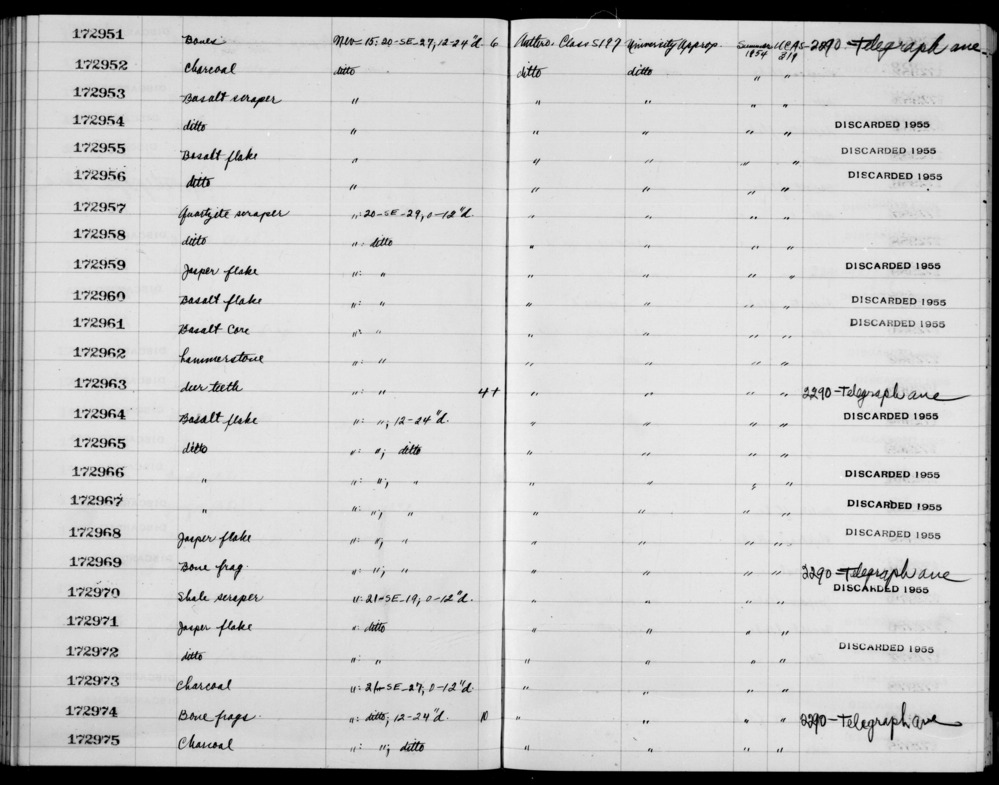 172951 Bones Nev-15: 20-SE-27, 12-24"d. 6 Anthro. Class S197 University Approp. Summer 1954 UCAS 219 2290-Telegraph ave.
172952 Charcoal ditto ditto ditto " "
172953 Basalt scraper " " " " "
172954 ditto " " " " " DISCARDED 1955
172955 Basalt flake " " " " " DISCARDED 1955
172956 ditto " " " " " DISCARDED 1955
172957 Quartzite scraper ": 20-SE-29, 0-12"d. " " " "
172958 ditto ": ditto " " " "
172959 Jasper flake ": " " " " " DISCARDED 1955
172960 Basalt flake ": " " " " " DISCARDED 1955
172961 Basalt Core ": " " " " " DISCARDED 1955
172962 hammerstone ": " " " " "
172963 deer teeth ": " 4+ " " " " 2290-Telegraph ave
172964 Basalt flake ": ", 12-24"d. " " " " DISCARDED 1955
172965 ditto ": "; ditto " " " "
172966 " ": "; " " " " " DISCARDED 1955
172967 " ": "; " " " " " DISCARDED 1955
172968 Jasper flake ": "; " " " " " DISCARDED 1955
172969 Bone frag. ": "; " " " " " 2290-Telegraph ave
172970 Shale scraper ": 21-SE-19, 0-12"d. " " " " DISCARDED 1955
172971 Jasper flake ": ditto " " " "
172972 ditto ": " " " " " DISCARDED 1955
172973 Charcoal ": 21-SE-27, 0-12"d. " " " "
172974 Bone frags. ": ditto, 12-24"d. 10 " " " " 2290-Telegraph ave
172975 Charcoal ": "; ditto " " " "